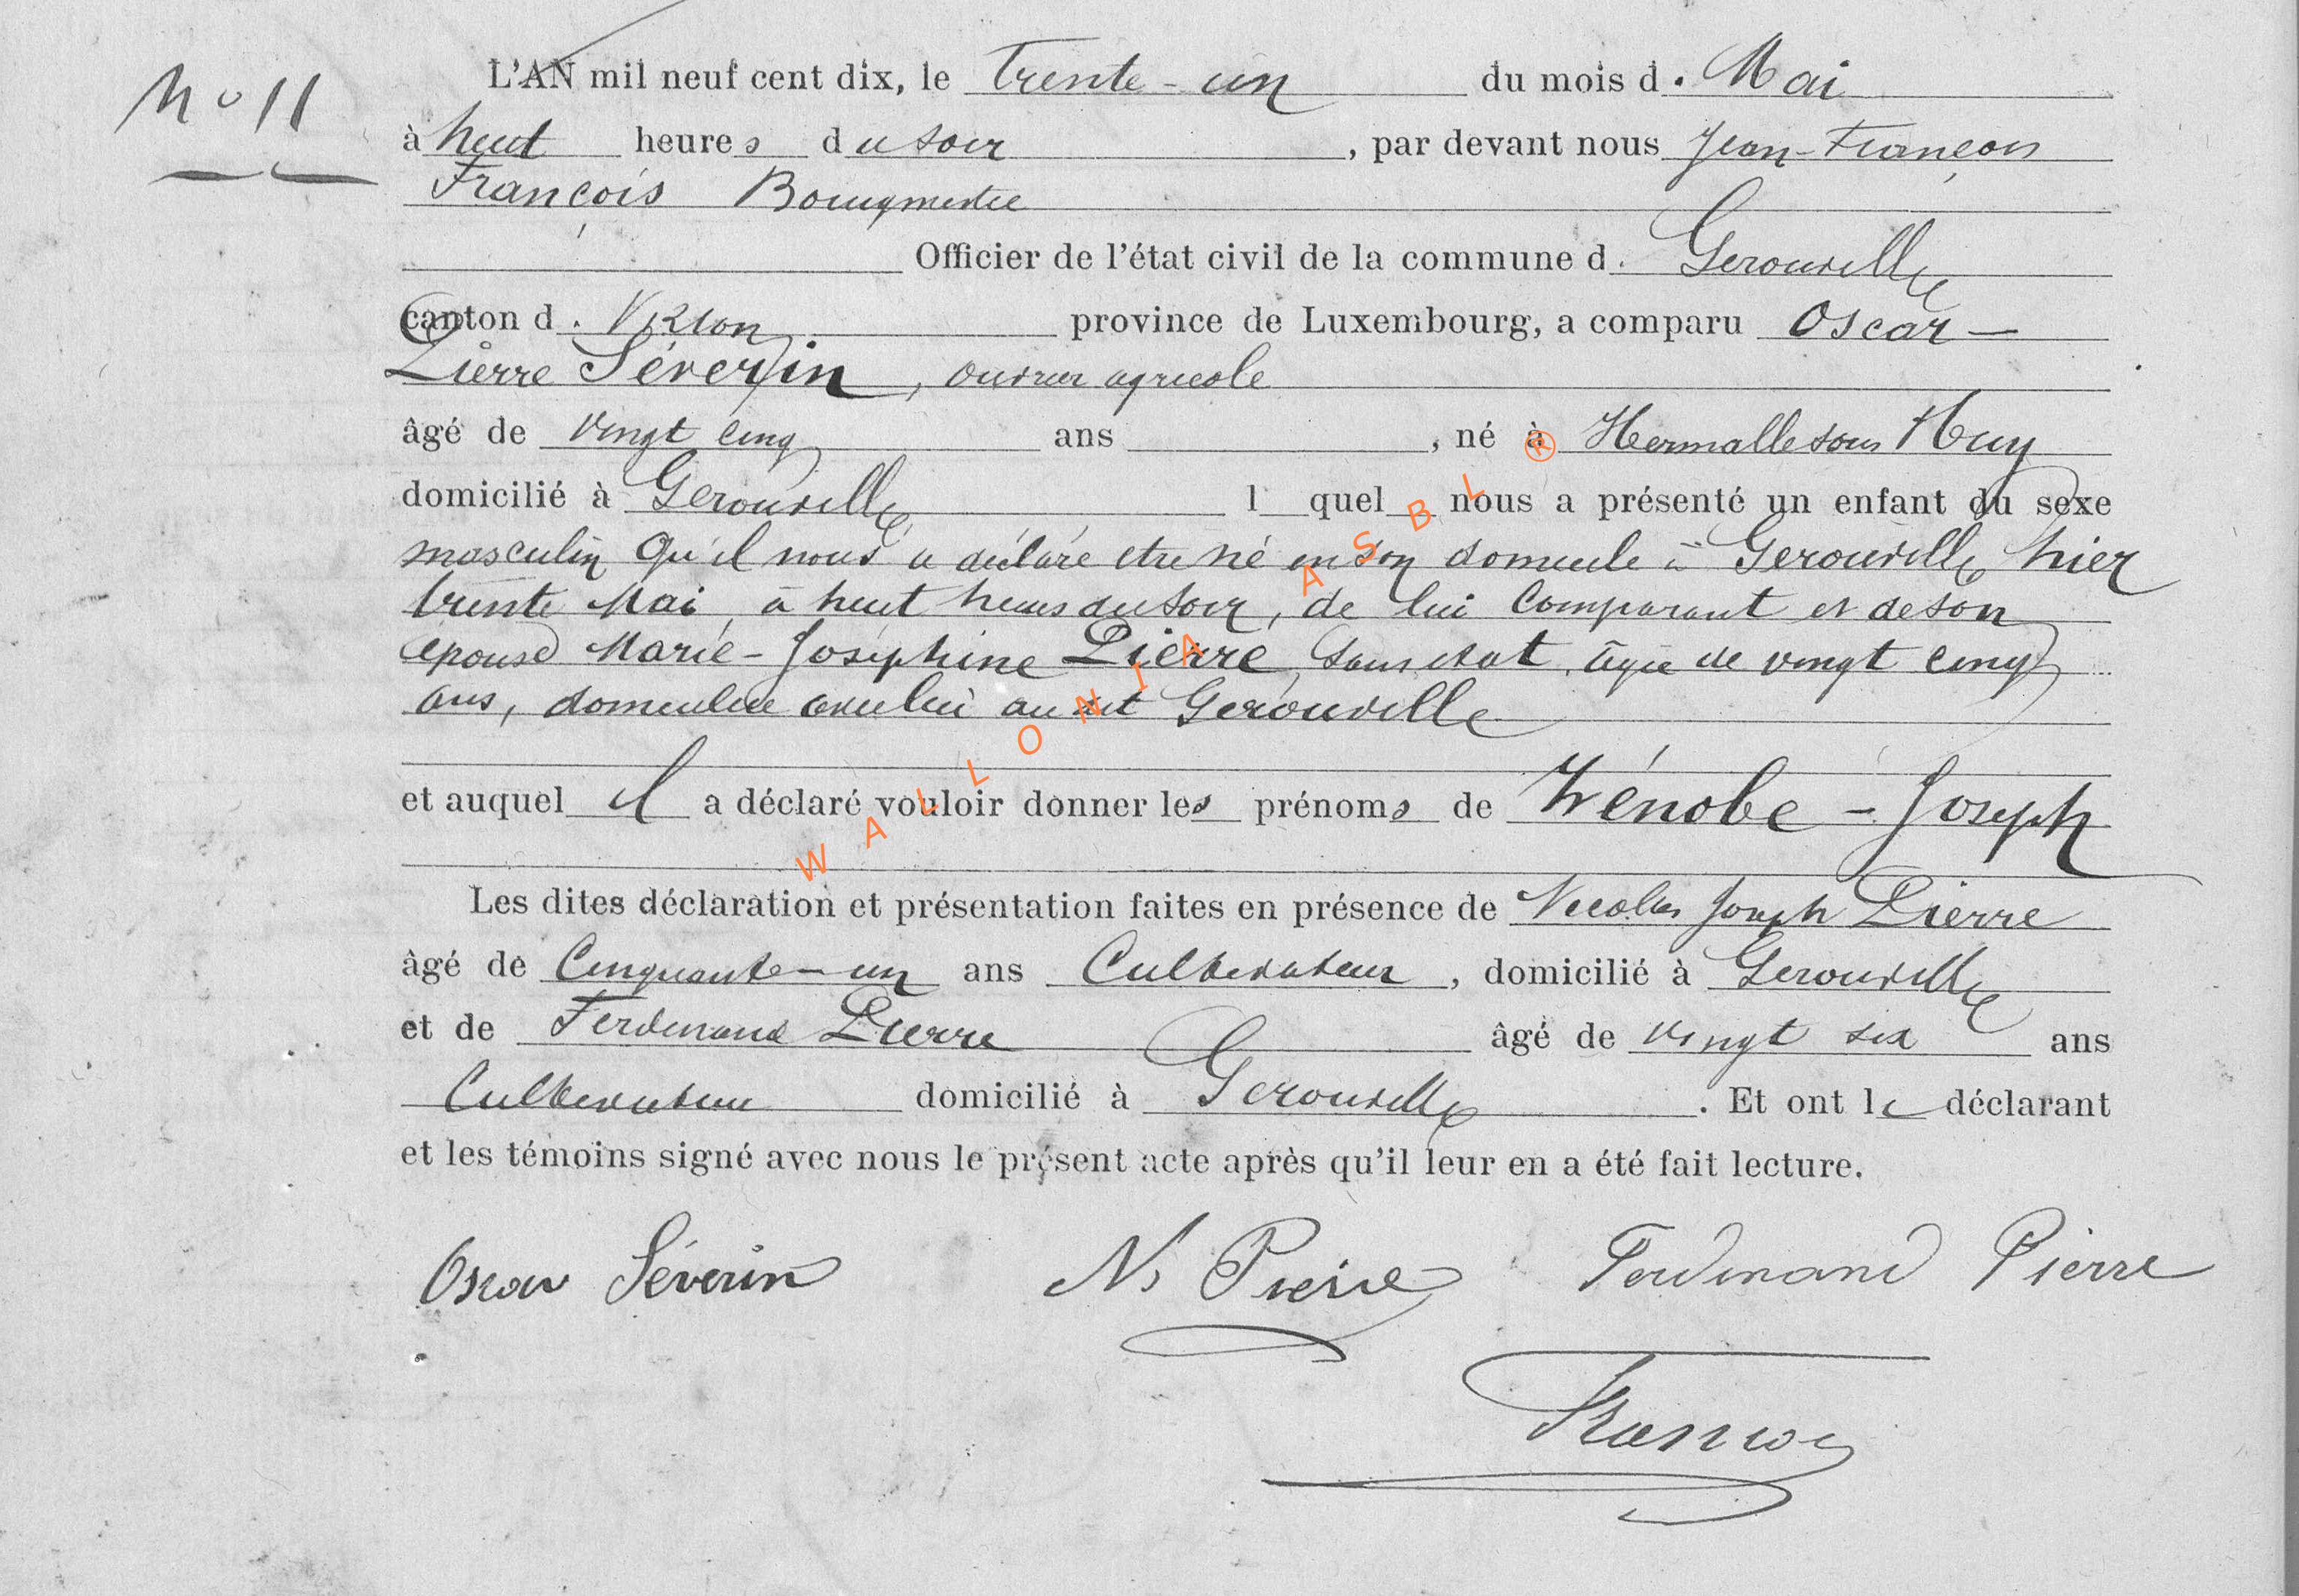 N° 11
L'AN mil neuf cent dix, le Trente-un du mois d. Mai
à huit heures du soir, par devant nous Jean-François
François Bourgmestre
Officier de l'état civil de la commune d. Gerouville
canton d. Virton province de Luxembourg, a comparu Oscar-
Pierre Séverin, ouvrier agricole
âgé de vingt cinq ans, né à Hermalle sous Huy
domicilié à Gerouville l quel nous a présenté un enfant du sexe
masculin qu'il nous a déclaré etre né en son domicile à Gerouville hier
trente Mai, à huit heures du soir, de lui comparant et de son
epouse Marie-Joséphine Pierre, sans etat, âgée de vingt cinq
ans, domiciliée avec lui au dit Gerouville
et auquel il a déclaré vouloir donner les prénoms de Zénobe-Joseph
Les dites déclaration et présentation faites en présence de Nicolas Joseph Pierre
âgé de Cinquante-un ans Cultivateur, domicilié à Gerouville
et de Ferdinand Pierre âgé de vingt six ans
Cultivateur domicilié à Gerouville. Et ont le déclarant
et les témoins signé avec nous le présent acte après qu'il leur en a été fait lecture.
Oscar Séverin N. Pierre Ferdinand Pierre
François
WALLONIA ASBL ®